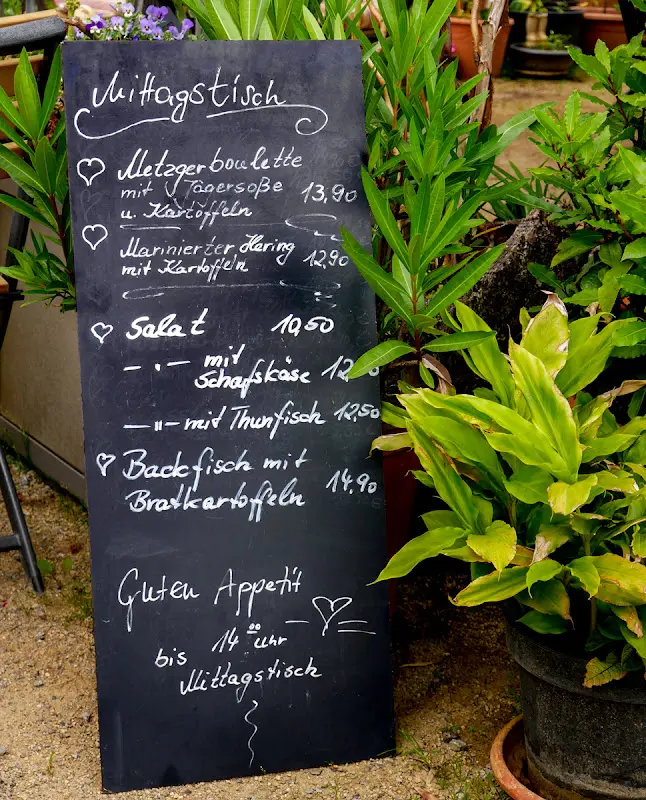 Mittagstisch
Metzgerboulette
mit Jägersoße 13,90
u. Kartoffeln
Marinierter Hering
mit Kartoffeln 12,90
Salat 10,50
— . — mit
Schafskäse
— " — mit Thunfisch 12,50
Backfisch mit
Bratkartoffeln 14,90
Guten Appetit
bis 14 00 Uhr
Mittagstisch